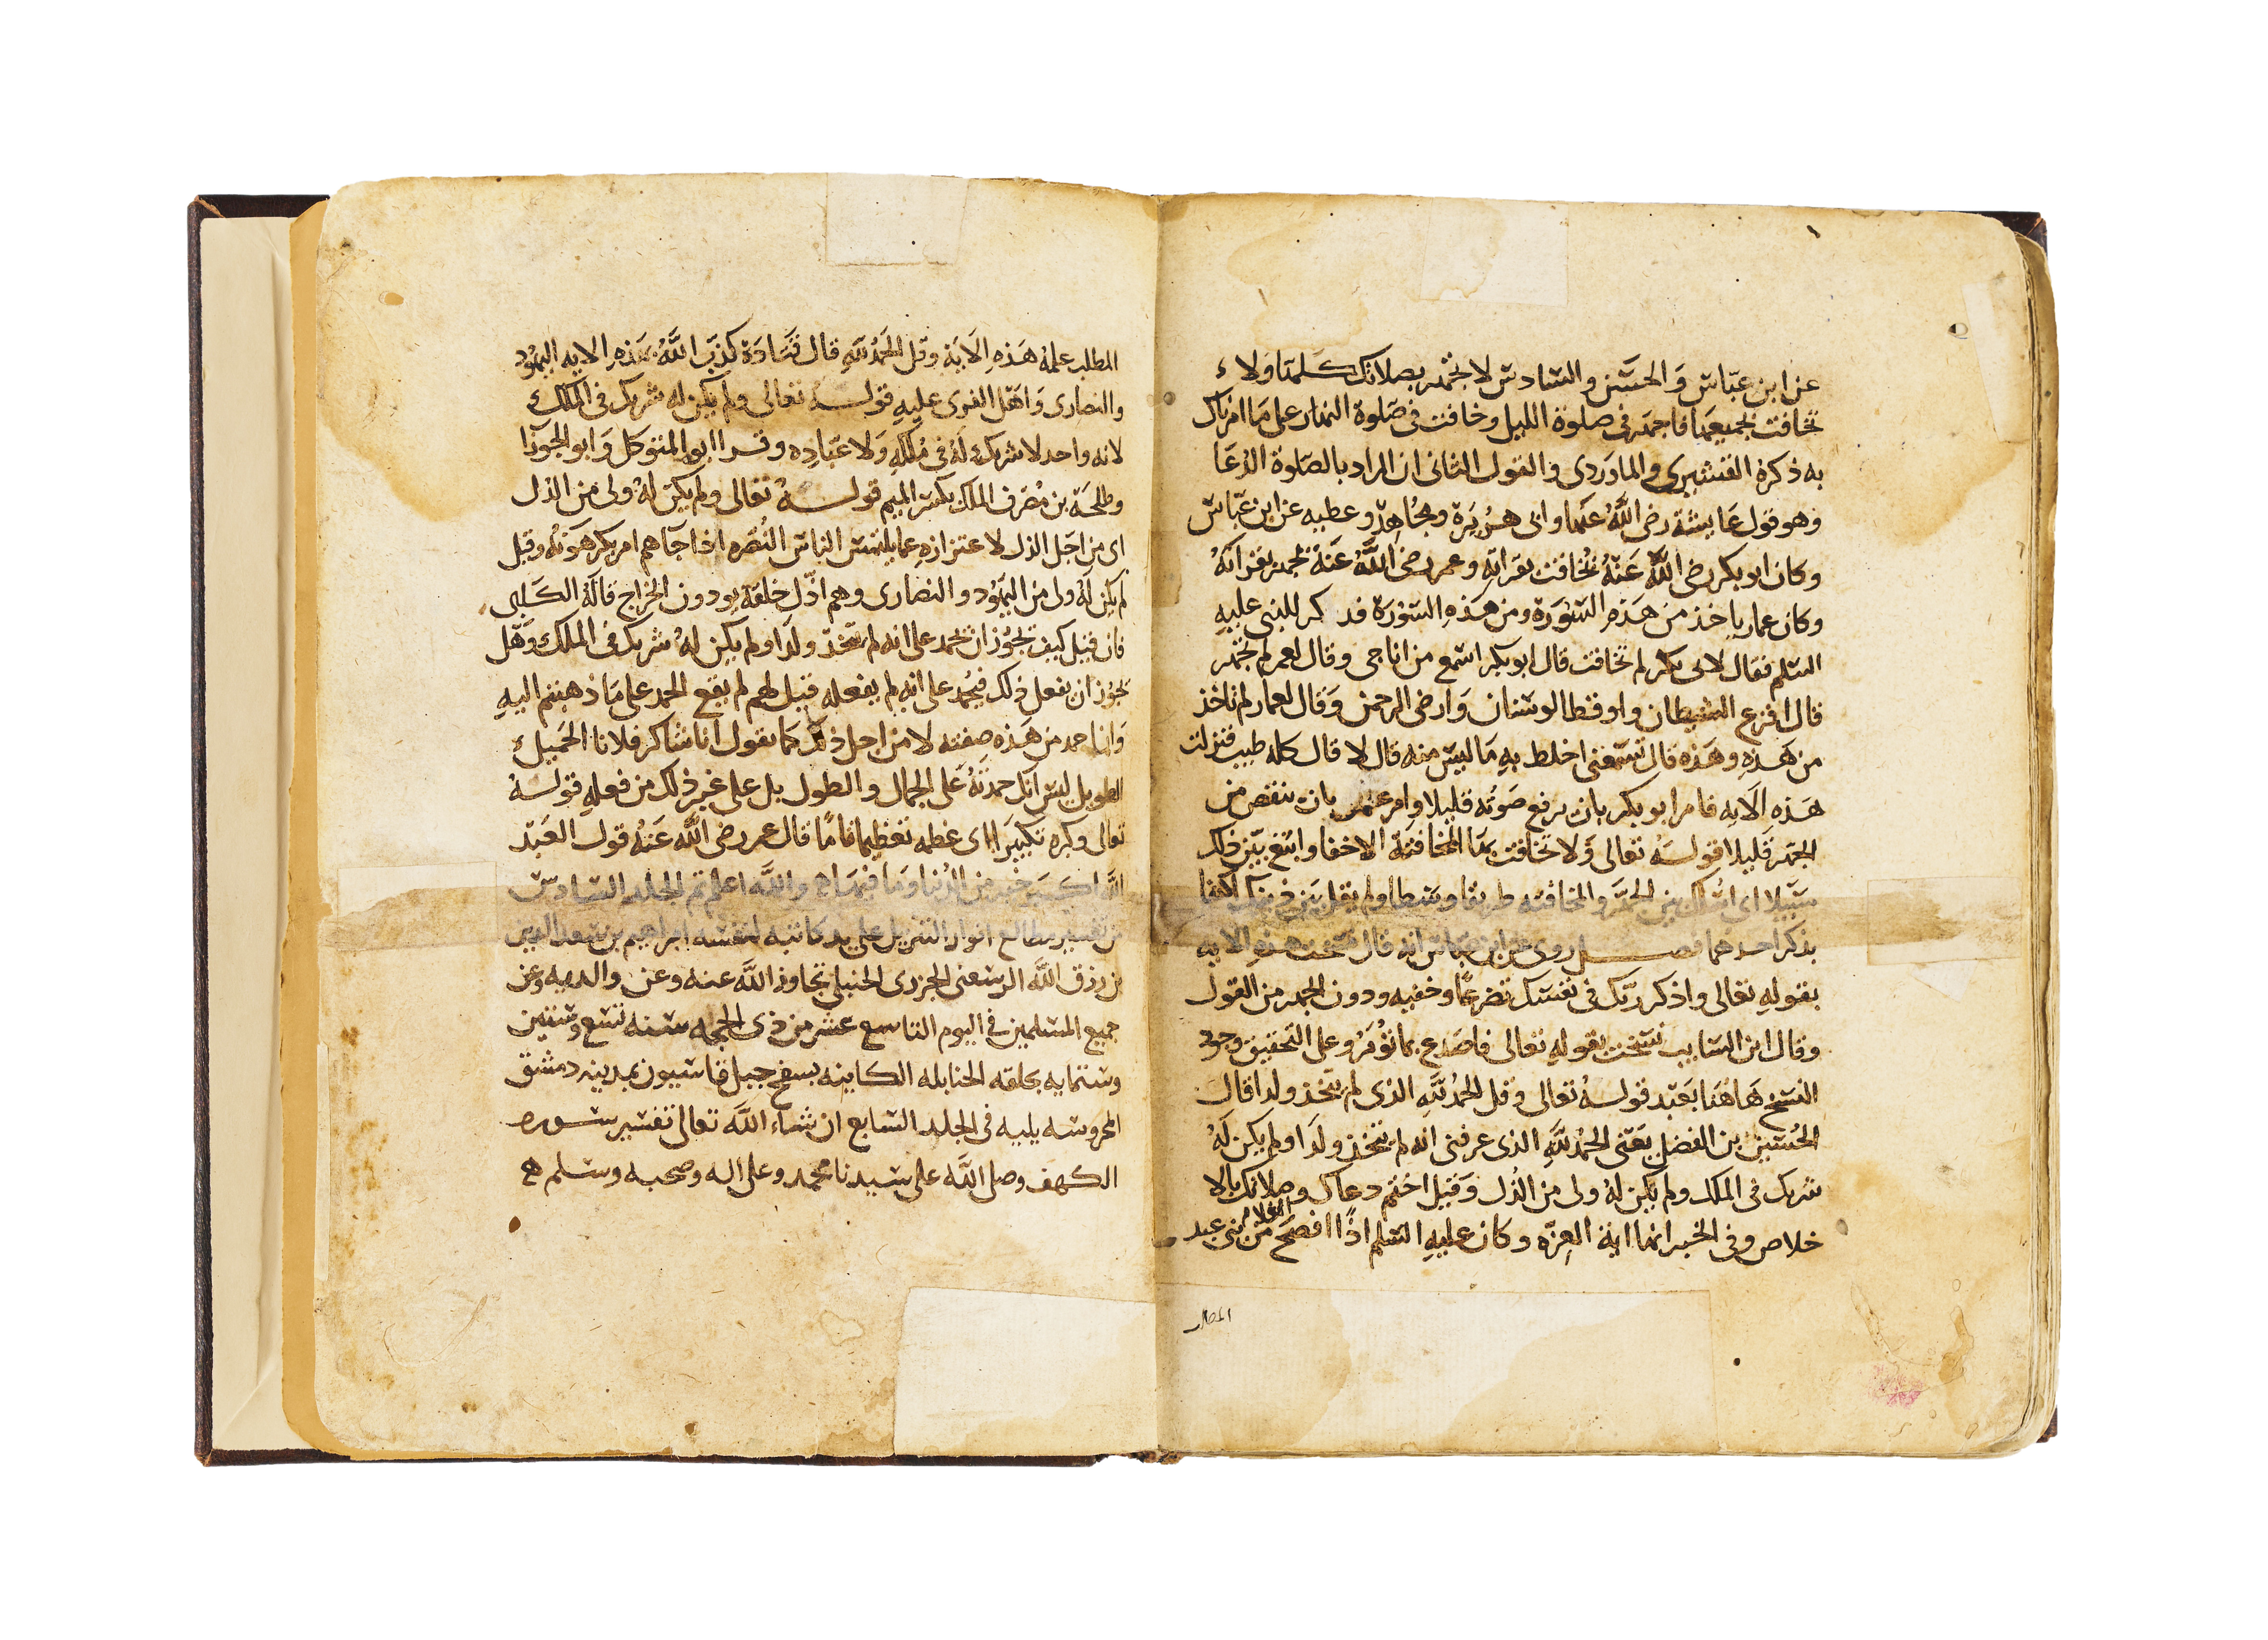 عن ابن عباس والحسن والسادس لا تجهر بصلاتك كلها ولا
تخافت بجميعها فاجهر في صلوة الليل وخافت في صلوة النهار على ما امرناك
به ذكره القشيري والماوردي والقول الثاني ان المراد بالصلوة الدعا
وهو قول عايشة رضي الله عنها وابي هريرة ومجاهد وعطيه عن ابن عباس
وكان ابو بكر رضي الله عنه يخافت بقراته وعمر رضي الله عنه يجهر بقراته
وكان عمار ياخذ من هذه السورة ومن هذه السورة فذكر للنبي عليه
السلم فقال لابي بكر لم تخافت قال ابو بكر اسمع من اناجي وقال لعمر لم تجهر
قال افزع الشيطان واوقظ الوسنان وارضي الرحمن وقال لعمار لم تاخذ
من هذه وهذه قال تسمعني اخلط به ما ليس منه قال لا قال كله طيب فنزلت
هذه الايه فامر ابو بكر بان يرفع صوته قليلا وامر عمر بان ينقص من
الجهر قليلا قوله تعالى ولا تخافت بها المخافتة الاخفا وابتغ بين ذلك
سبيلا اي اسلك بين الجهر والمخافته طريقا وسطا ولم يقل بين ذينك اكتفا
بذكر احدهما فصل روي عن ابن عباس انه قال نسخت هذه الايه
بقوله تعالى واذكر ربك في نفسك تضرعا وخفيه ودون الجهر من القول
وقال ابن السايب نسخت بقوله تعالى فاصدع بما تؤمر وعلى التحقيق وجود
النسخ هاهنا بعيد قوله تعالى وقل الحمد لله الذي لم يتخذ ولدا قال
الحسين بن الفضل يعني الحمد لله الذي عرفني انه لم يتخذ ولدا ولم يكن له
شريك في الملك ولم يكن له ولي من الذل وقيل اختم دعاك وصلاتك بالا
خلاص وفي الخبر انها اية العزه وكان عليه السلم اذا افصح الغلام من بني عبد
المطلب
المطلب علمه هذه الاية وقل الحمد لله قال قتادة كذب الله بهذه الايه اليهود
والنصارى واهل الفري عليه قوله تعالى ولم يكن له شريك في الملك
لانه واحد لا شريك له في ملكه ولا عباده وقرا ابو المتوكل وابو الجوزا
وطلحة بن مصرف الملك بكسر الميم قوله تعالى ولم يكن له ولي من الذل
اي من اجل الذل لاعتزازه عما يلتمس الناس النصره اذا جآهم امر يكرهونه وقيل
لم يكن له ولي من اليهود والنصارى وهم اذل خلقه يودون الخراج قاله الكلبي
فان قيل كيف يجوز ان يحمد على انه لم يتخذ ولدا ولم يكن له شريك في الملك وهل
يجوز ان يفعل ذلك فيحمد على انه لم يفعله قيل لهم لم يقع الحمد على ما ذهبتم اليه
وانما حمد من هذه صفته لا من اجل ذلك كما يقول انا شاكر فلانا الجميل
الطويل ليس انك حمدته على الجمال والطول بل على غير ذلك من فعله قوله
تعالى وكبره تكبيرا اي عظمه تعظيما تاما قال عمر رضي الله عنه قول العبد
الله اكبر خير من الدنيا وما فيها والله اعلم تم الجلد السادس
من تفسير مطالع انوار التنزيل على يد كاتبه لنفسه ابراهيم بن سعد الدين
بن رزق الله الرسعني الجزري الحنبلي تجاوز الله عنه وعن والديه وعن
جميع المسلمين في اليوم التاسع عشر من ذي الحجه سنه تسع وستين
وستمايه بحلقه الحنابله الكاينه بسفح جبل قاسيون بمدينه دمشق
المحروسه يليه في الجلد السابع ان شاء الله تعالى تفسير سوره
الكهف وصلى الله على سيدنا محمد وعلى اله وصحبه وسلم